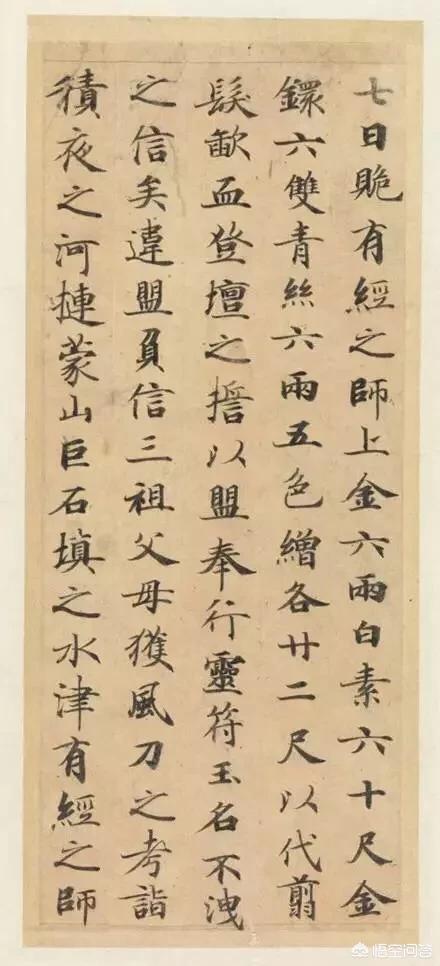 七日䞈有經之師上金六兩白素六十尺金
鐶六雙青絲六兩五色繒各廿二尺以代翦
髮歃血登壇之誓以盟奉行靈符玉名不洩
之信矣違盟負信三祖父母獲風刀之考詣
積夜之河摙蒙山巨石填之水津有經之師
悟空问答